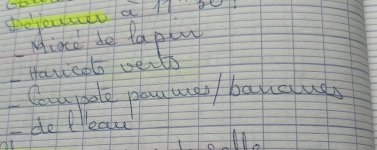 Déjeuner à 11h30 :
- Mixé de lapin
- Haricots verts
- Compote pommes/bananes
- de l'eau